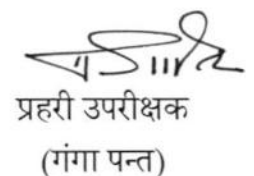 प्रहरी उपरीक्षक
(गंगा पन्त)